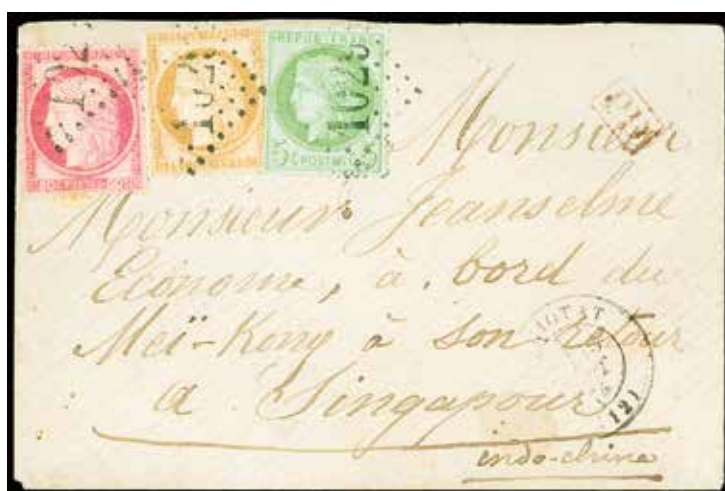 REPUB FRANC
80 POSTES 80
5 C POSTES 5
1025
PD
Monsieur
Monsieur Jeanselme
Econome, à bord du
Meï-Kong à son retour
à Singapour
indo-chine
(12)